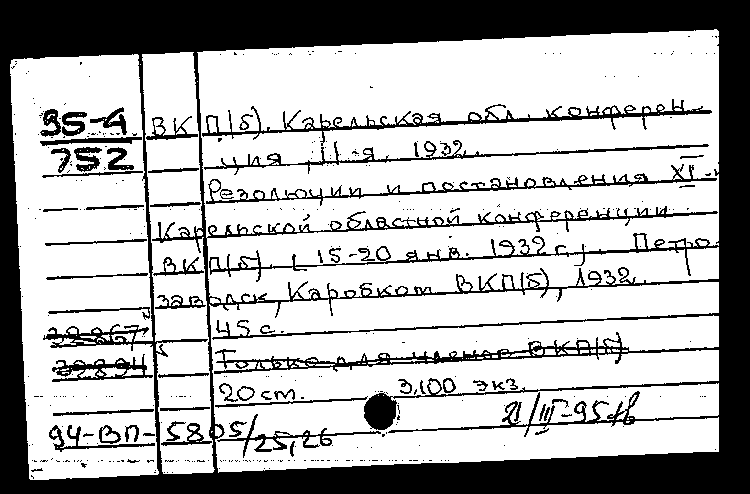 95-4 ВКП(б). Карельская обл. конферен-
752 ция, II-я, 1932.
Резолюции и постановления XI-й
Карельской областной конференции
ВКП(б). [15-20 янв. 1932 г.]. Петро
заводск, Каробком ВКП(б), 1932.
45 с.
Только для членов ВКП(б)
20 ст. 3,100 экз.
94-ВП-5805/25,26